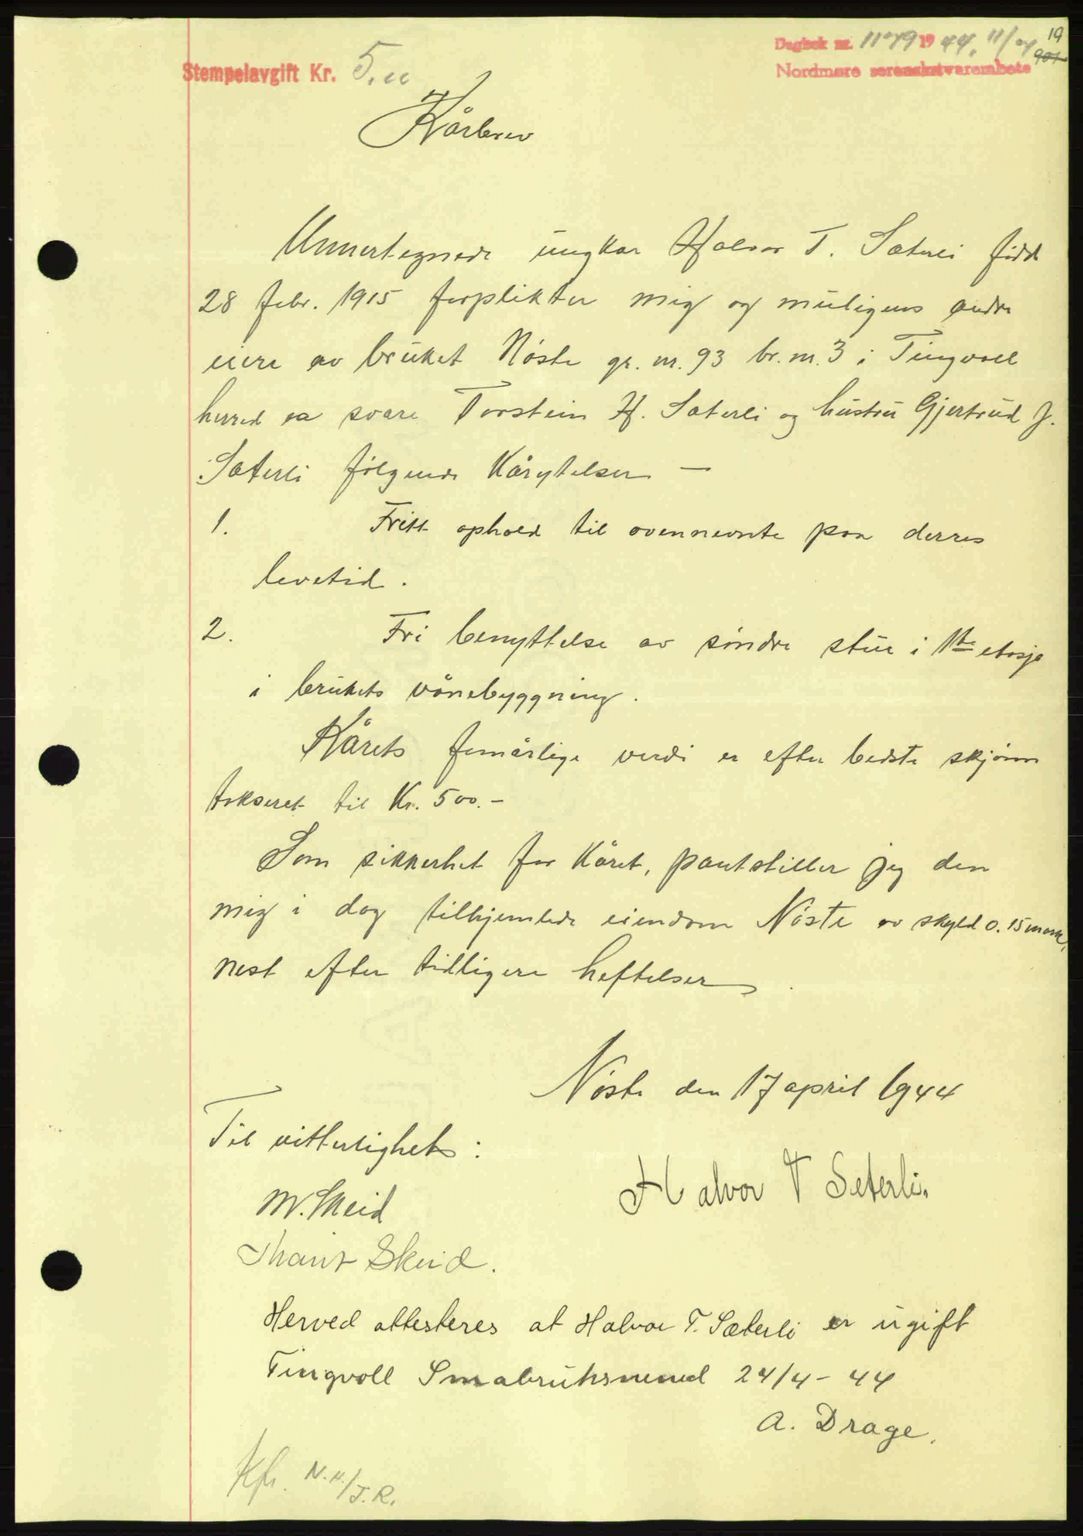 Dagbok nr. 1179 1944, 11/
19
901
Stempelavgift Kr. 5,00
Nordmøre sorenskriverembete
Kårbrev
Unnertegnede ungkar Halvor T. Sæterli född
28 febr. 1915 forplikter mig og muligens andre
eiere av bruket Nöste gr. nr. 93 br. nr. 3 i Tingvoll
herred aa svare Torstein H. Sæterli og hustru Gjertrud J.
Sæterli fölgende Kårytelser —
1. Fritt ophold til ovennevnte paa derres
levetid.
2. Fri benyttelse av söndre stue i 1ste etasje
i brukets vånebyggning.
Kårets femårlige verdi er efter bedste skjönn
takseret til Kr. 500.-
Som sikkerhet for Kåret, pantstiller jeg den
mig i dag tilhjemlede eiendom Nöste av skyld 0.15 mark,
nest efter tidligere heftelser.
Nöste den 17 april 1944
Til vitterlighet:
Halvor T Seterli.
M. Skeid
Skeid.
Herved attesteres at Halvor T. Sæterli er ugift
Tingvoll Smabruksnemd 24/4 - 44
A. Drage.
Kfr. N.M./J.R.